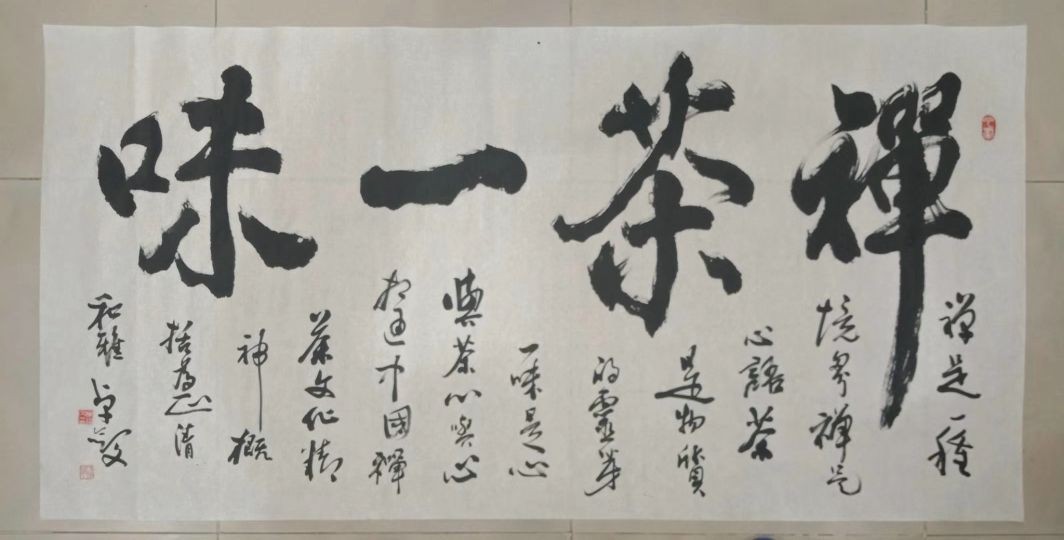 禪茶一味
禪是一種
境界禪是
心語茶
是物質
的靈芽
一味是心
與茶心與心
相通中國禪
茶文化精
神概
括為正清
和雅